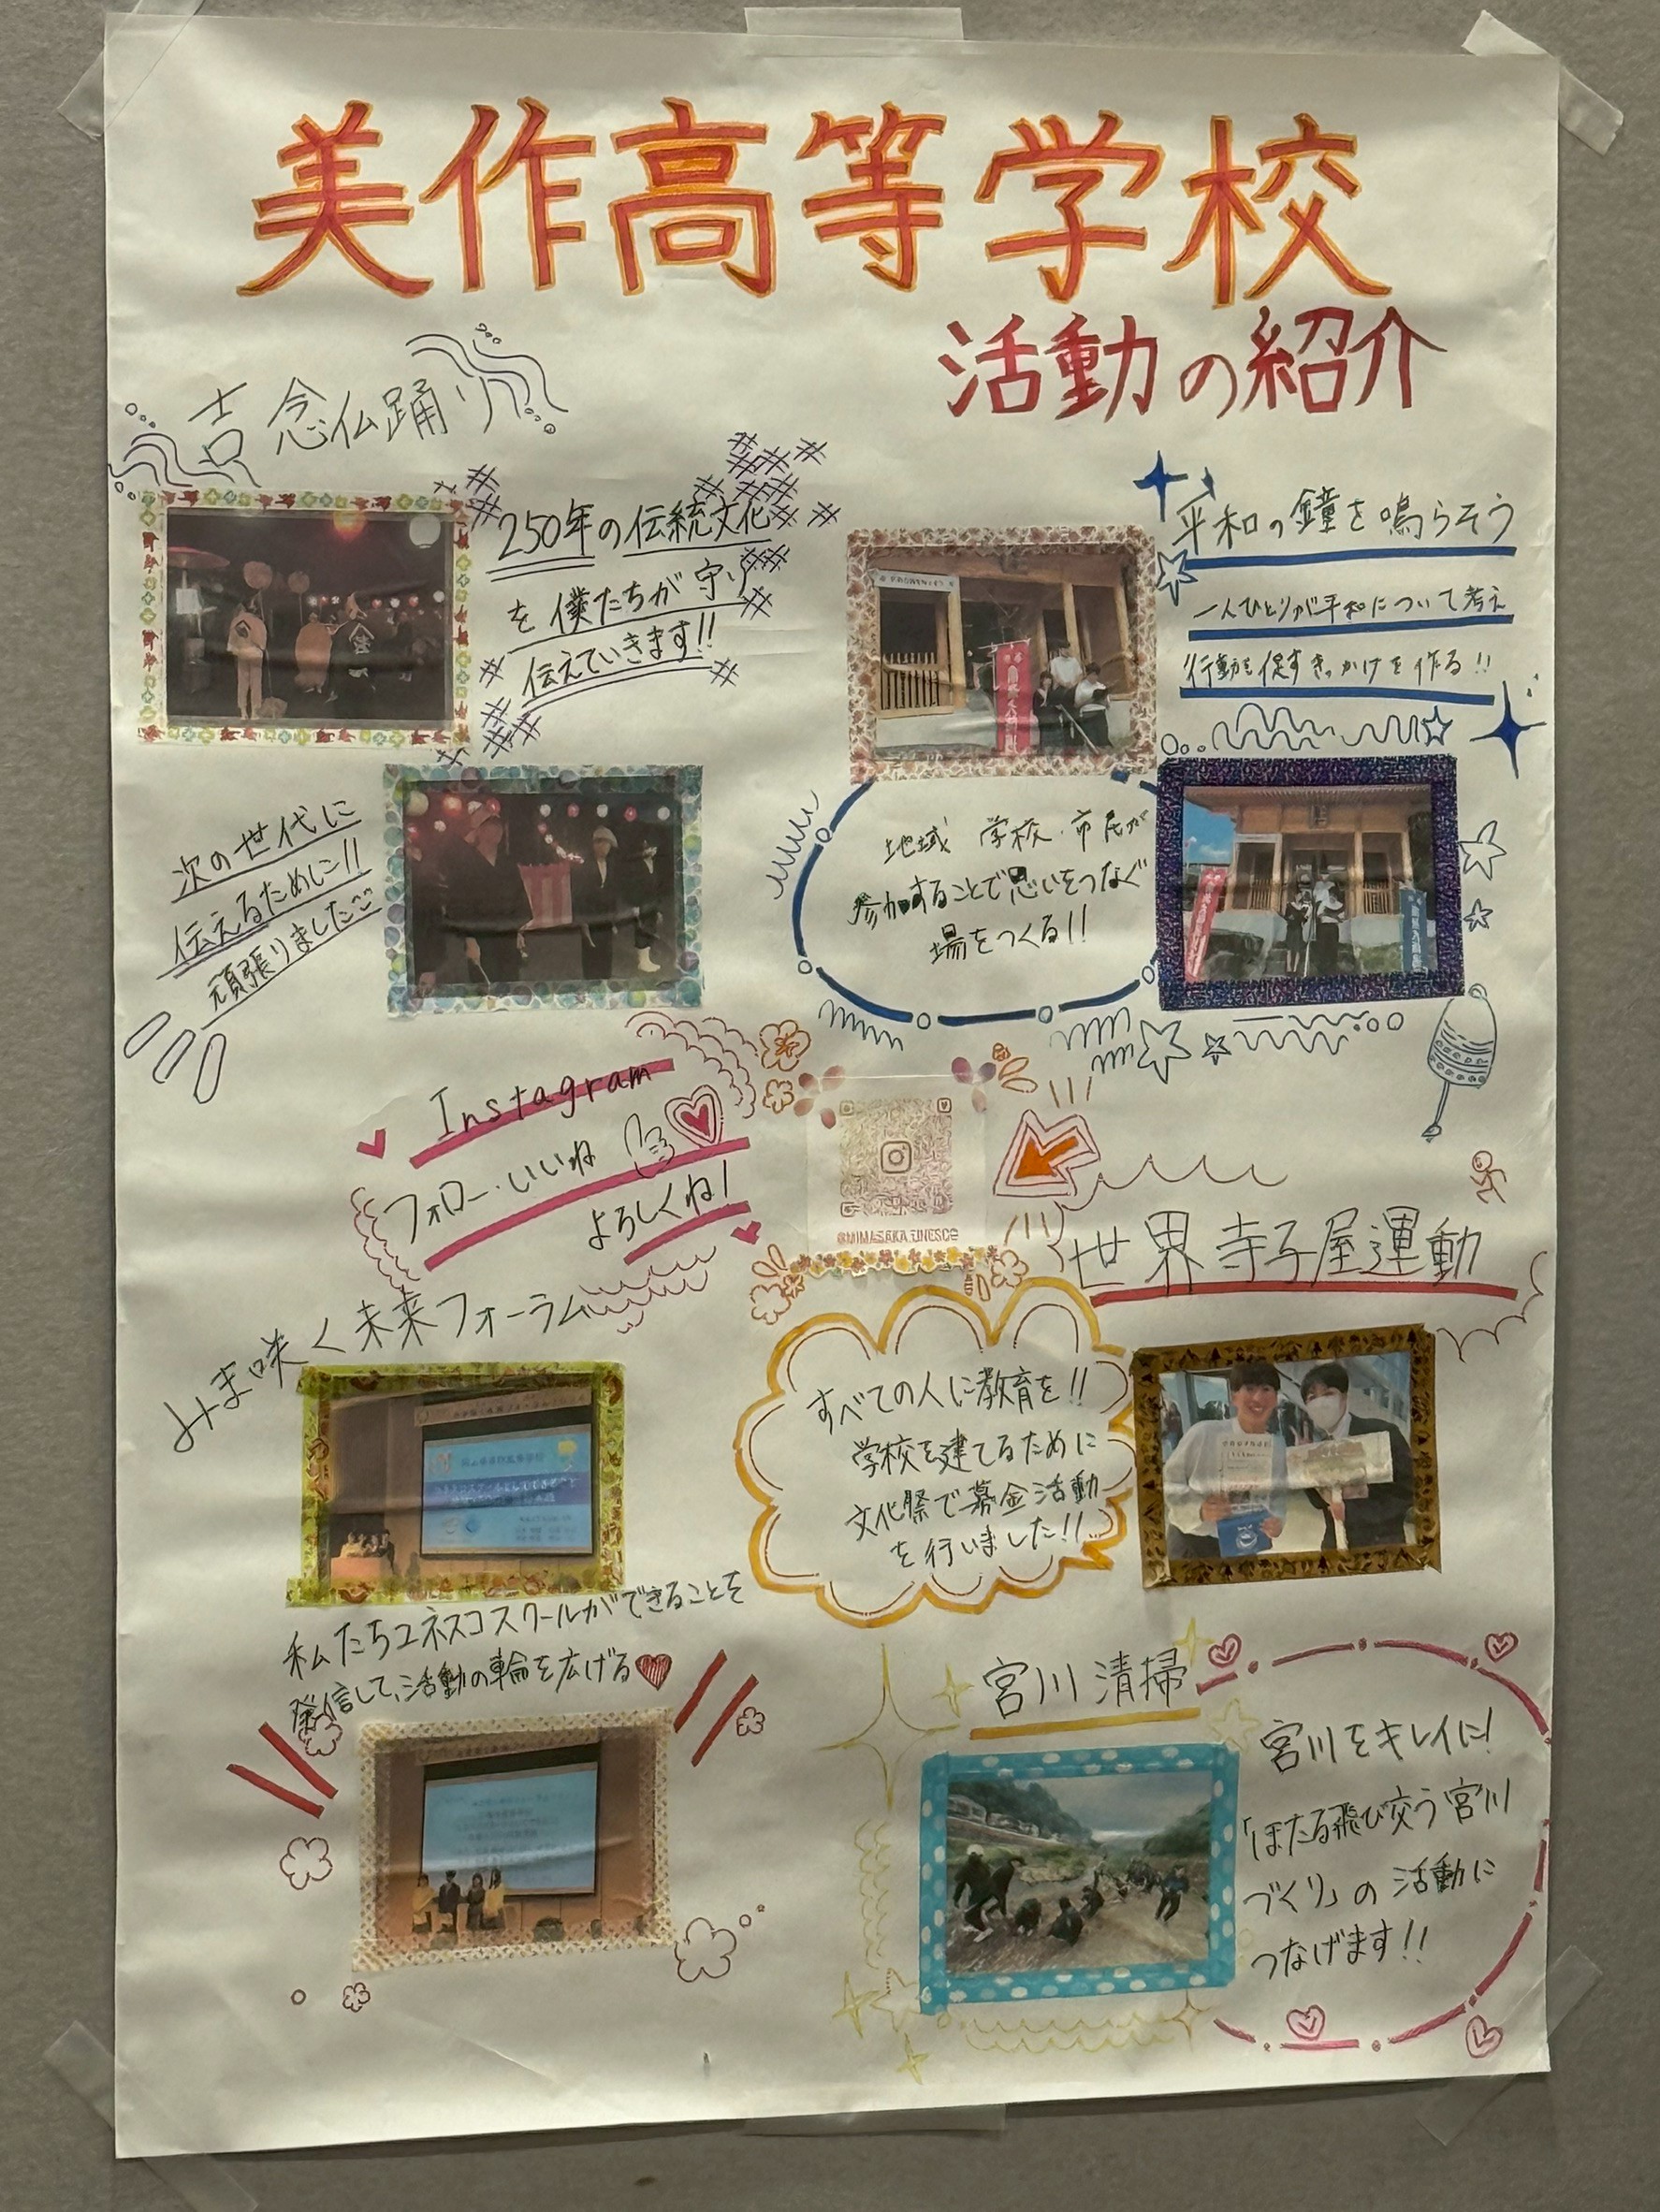 美作高等学校
活動の紹介
吉念仏踊り
250年の伝統文化
を僕たちが守り
伝えていきます!!
次の世代に
伝えるために!!
頑張りました
平和の鐘を鳴らそう
一人ひとりが平和について考え
行動を促すきっかけを作る!!
地域 学校・市民が
参加することで思いをつなぐ
場をつくる!!
Instagram
フォロー・いいね
よろしくね!
@MIMASAKA_UNESCO
世界寺子屋運動
すべての人に教育を!!
学校を建てるために
文化祭で募金活動
を行いました!!
みま咲く未来フォーラム
私たちユネスコスクールができることを
発信して、活動の輪を広げる
宮川清掃
宮川をキレイに!
「ほたる飛び交う宮川
づくり」の活動に
つなげます!!